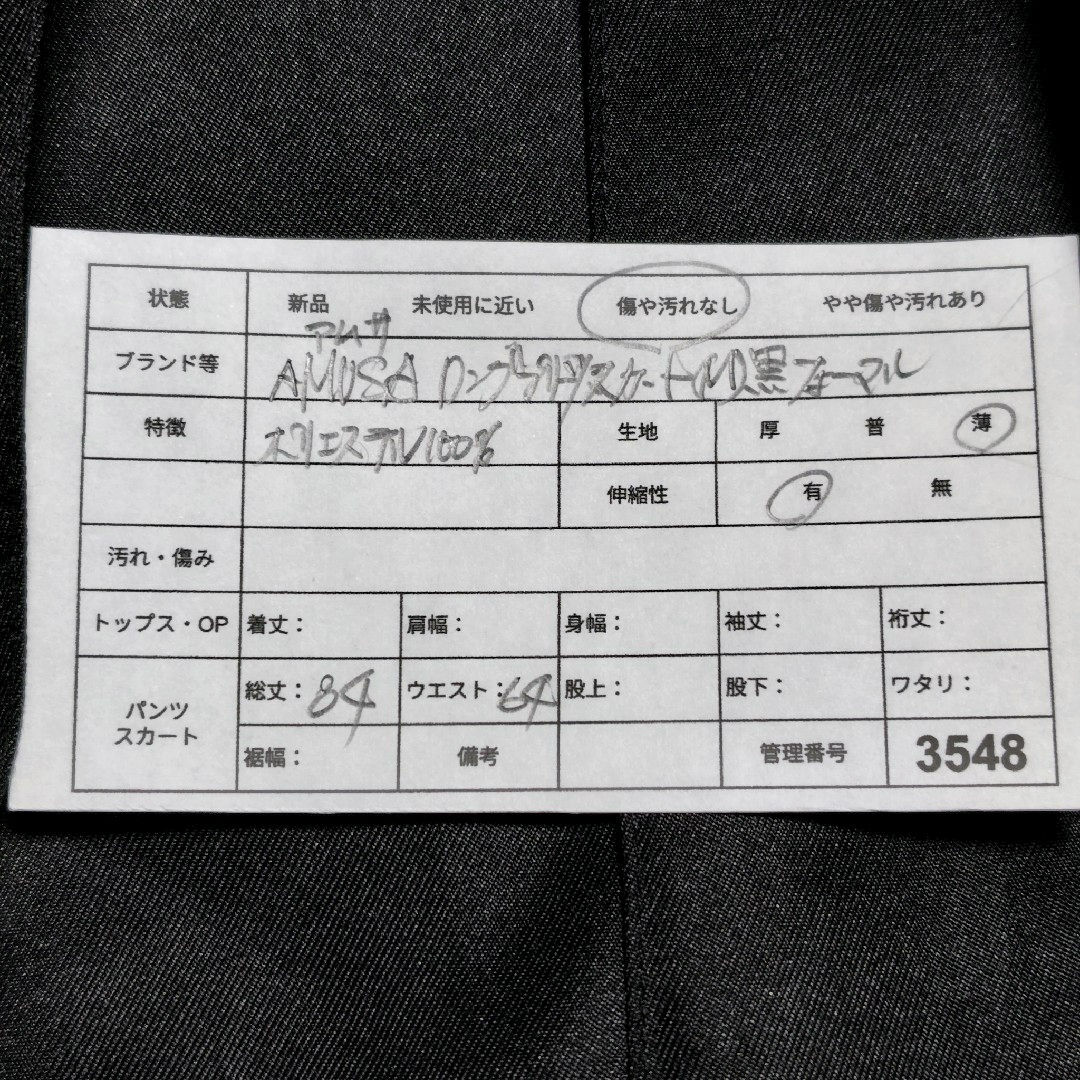 状態 新品 未使用に近い 傷や汚れなし やや傷や汚れあり
アムサ
ブランド等 AMUSA ロングプリーツスカート 黒 フォーマル
特徴 ポリエステル100% 生地 厚 普 薄
伸縮性 有 無
汚れ・傷み
トップス・OP 着丈： 肩幅： 身幅： 袖丈： 裄丈：
パンツ スカート 総丈：84 ウエスト：64 股上： 股下： ワタリ：
裾幅： 備考 管理番号 3548